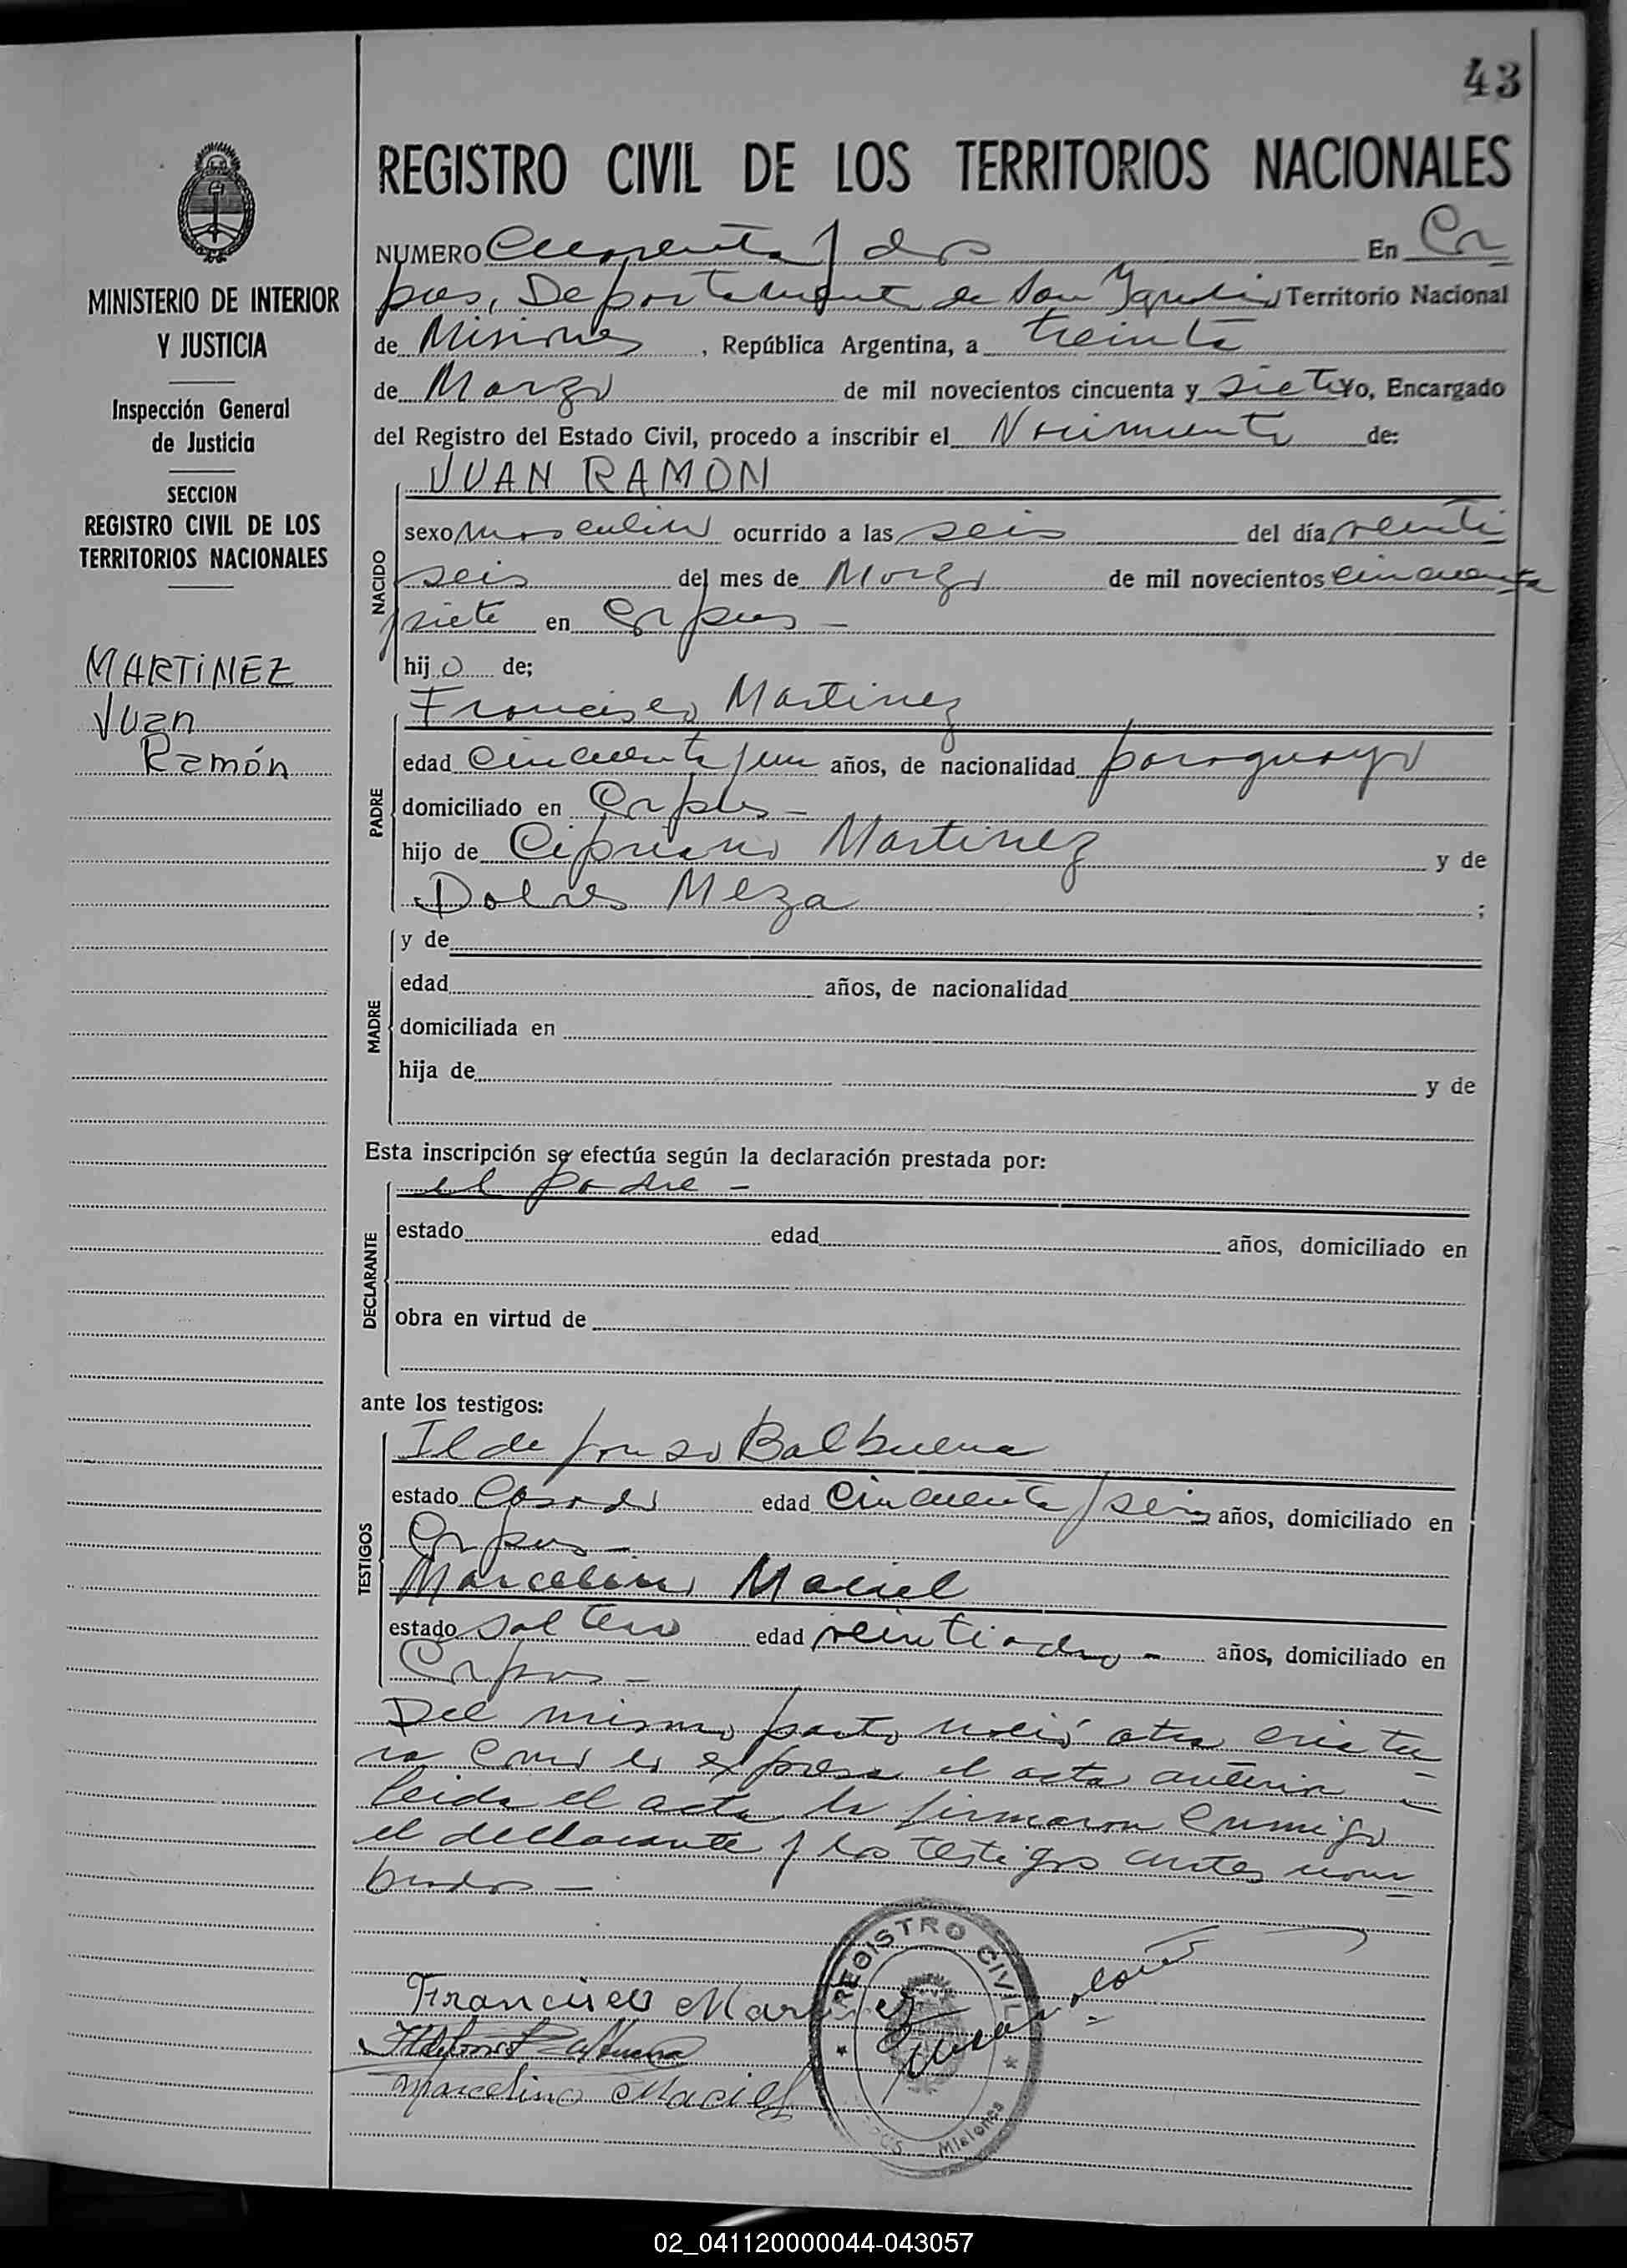 43
REGISTRO CIVIL DE LOS TERRITORIOS NACIONALES
MINISTERIO DE INTERIOR
Y JUSTICIA
Inspección General
de Justicia
SECCION
REGISTRO CIVIL DE LOS
TERRITORIOS NACIONALES
MARTINEZ
Juan
Ramón
NUMERO Cuarenta y dos En Cor
pus, Departamento de San Ignacio Territorio Nacional
de Misiones, República Argentina, a treinta
de Marzo de mil novecientos cincuenta y siete Yo, Encargado
del Registro del Estado Civil, procedo a inscribir el Nacimiento de:
JUAN RAMON
NACIDO
sexo masculino ocurrido a las seis del día veinti
seis del mes de Marzo de mil novecientos cincuenta
y siete en Corpus -
hijo de;
Francisco Martinez
PADRE
edad cincuenta y un años, de nacionalidad paraguayo
domiciliado en Corpus -
hijo de Cipriano Martinez y de
Dolores Meza ;
MADRE
y de
edad años, de nacionalidad
domiciliada en
hija de y de
Esta inscripción se efectúa según la declaración prestada por:
el padre -
DECLARANTE
estado edad años, domiciliado en
obra en virtud de
ante los testigos:
TESTIGOS
Ildefonso Balbuena
estado Casado edad cincuenta y seis años, domiciliado en
Corpus -
Marcelino Maciel
estado soltero edad veintiocho - años, domiciliado en
Corpus -
Del mismo parto nació otra criatu
ra como lo expresa el acta anterior -
Leida el acta la firmaron conmigo
el declarante y los testigos antes nom
brados -
Francisco Martinez
Ildefonso Balbuena
Marcelino Maciel
REGISTRO CIVIL
Misiones
02_041120000044-043057